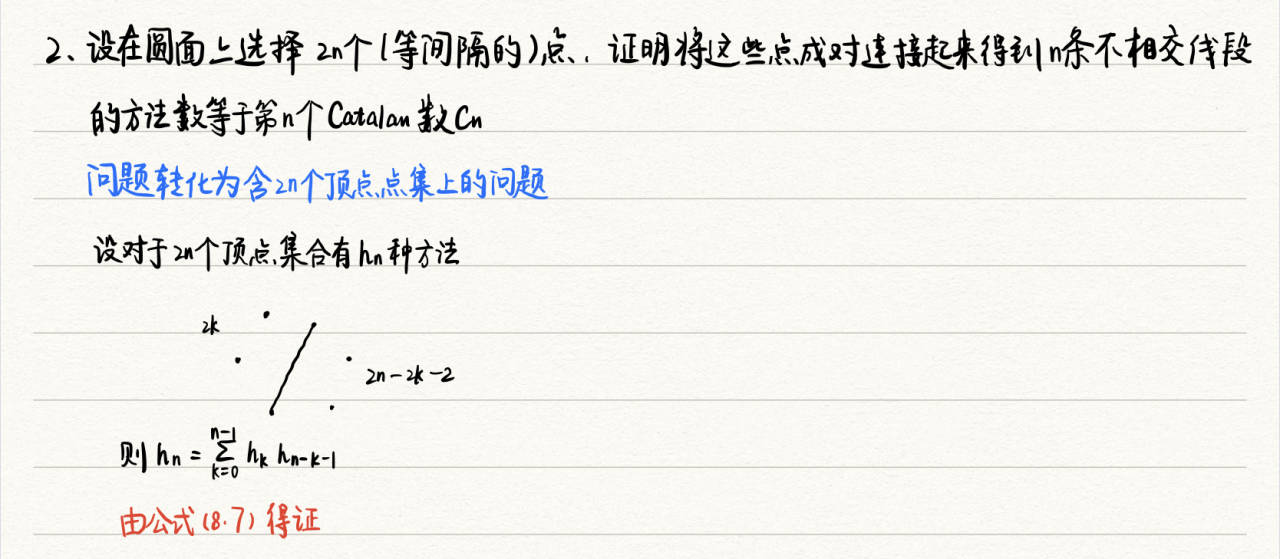 2、设在圆面上选择 2n个(等间隔的)点. 证明将这些点成对连接起来得到n条不相交线段
的方法数等于第n个Catalan数Cn
问题转化为含2n个顶点点集上的问题
设对于2n个顶点集合有hn种方法
2k
2n-2k-2
则 hn = ∑_{k=0}^{n-1} hk hn-k-1
由公式(8.7)得证